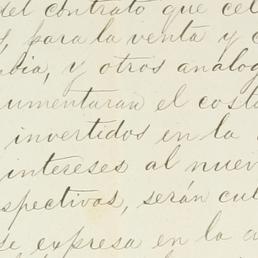 del contrato que cel
, para la venta y c
bia, y otros analog
umentaran el costo
invertidos en la
intereses al nuev
spectivas, serán cu
se expresa en la a